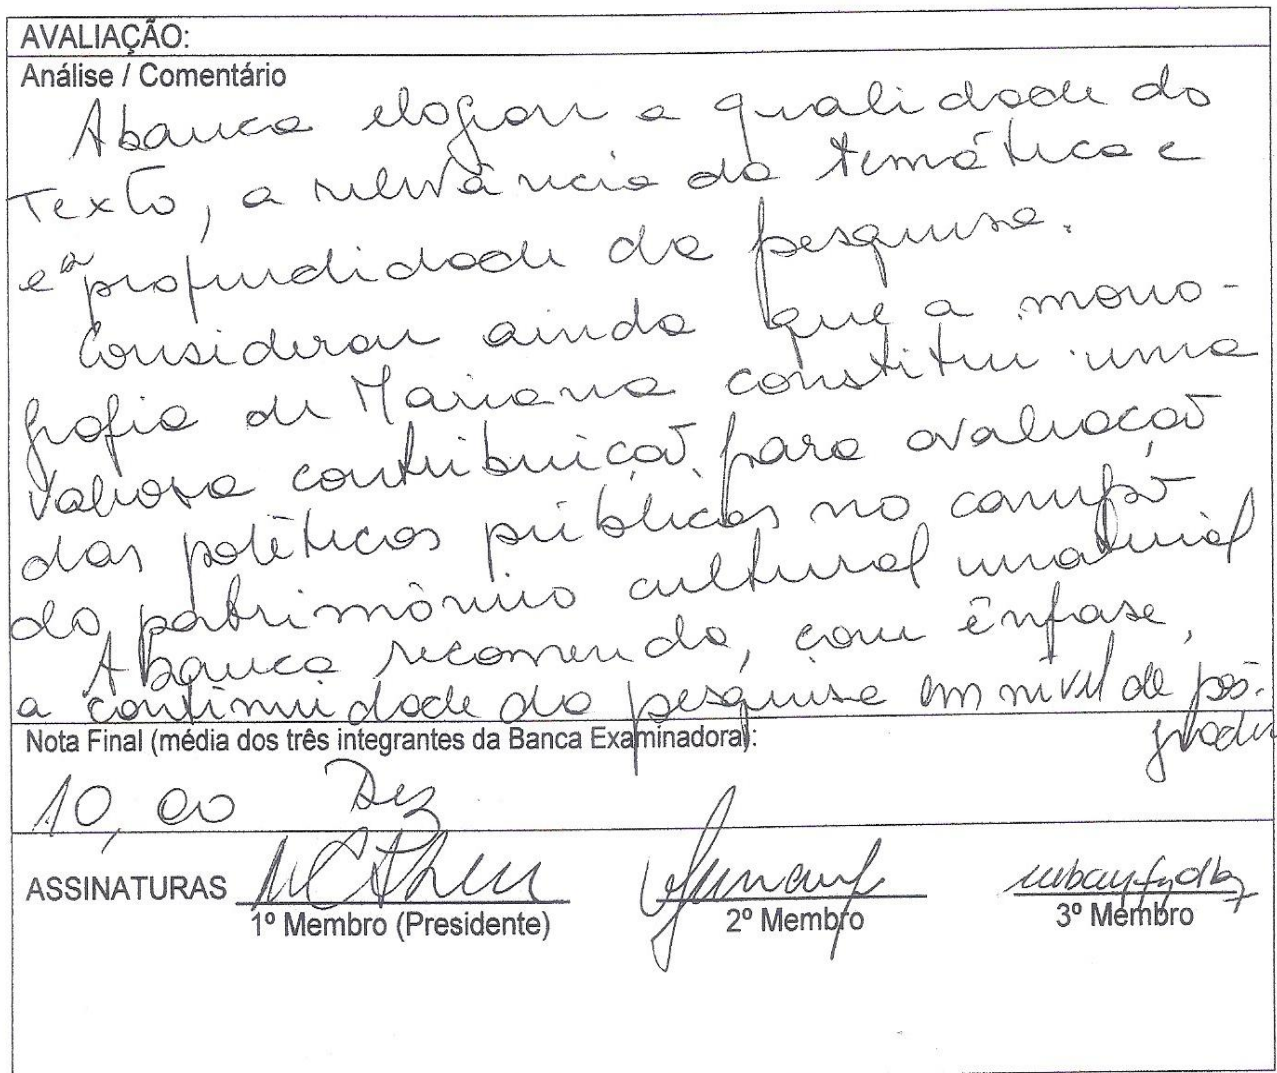 AVALIAÇÃO:
Análise / Comentário
A banca elogiou a qualidade do
Texto, a relevância da temática e
e a profundidade da pesquisa.
Considerou ainda que a mono-
grafia de Mariana constitui uma
valiosa contribuição para avaliação
das políticas públicas no campo
do patrimônio cultural imaterial
A banca recomenda, com ênfase,
a continuidade da pesquisa em nível de pós-
Nota Final (média dos três integrantes da Banca Examinadora):
10,00 Dez
ASSINATURAS
1º Membro (Presidente) 2º Membro 3º Membro